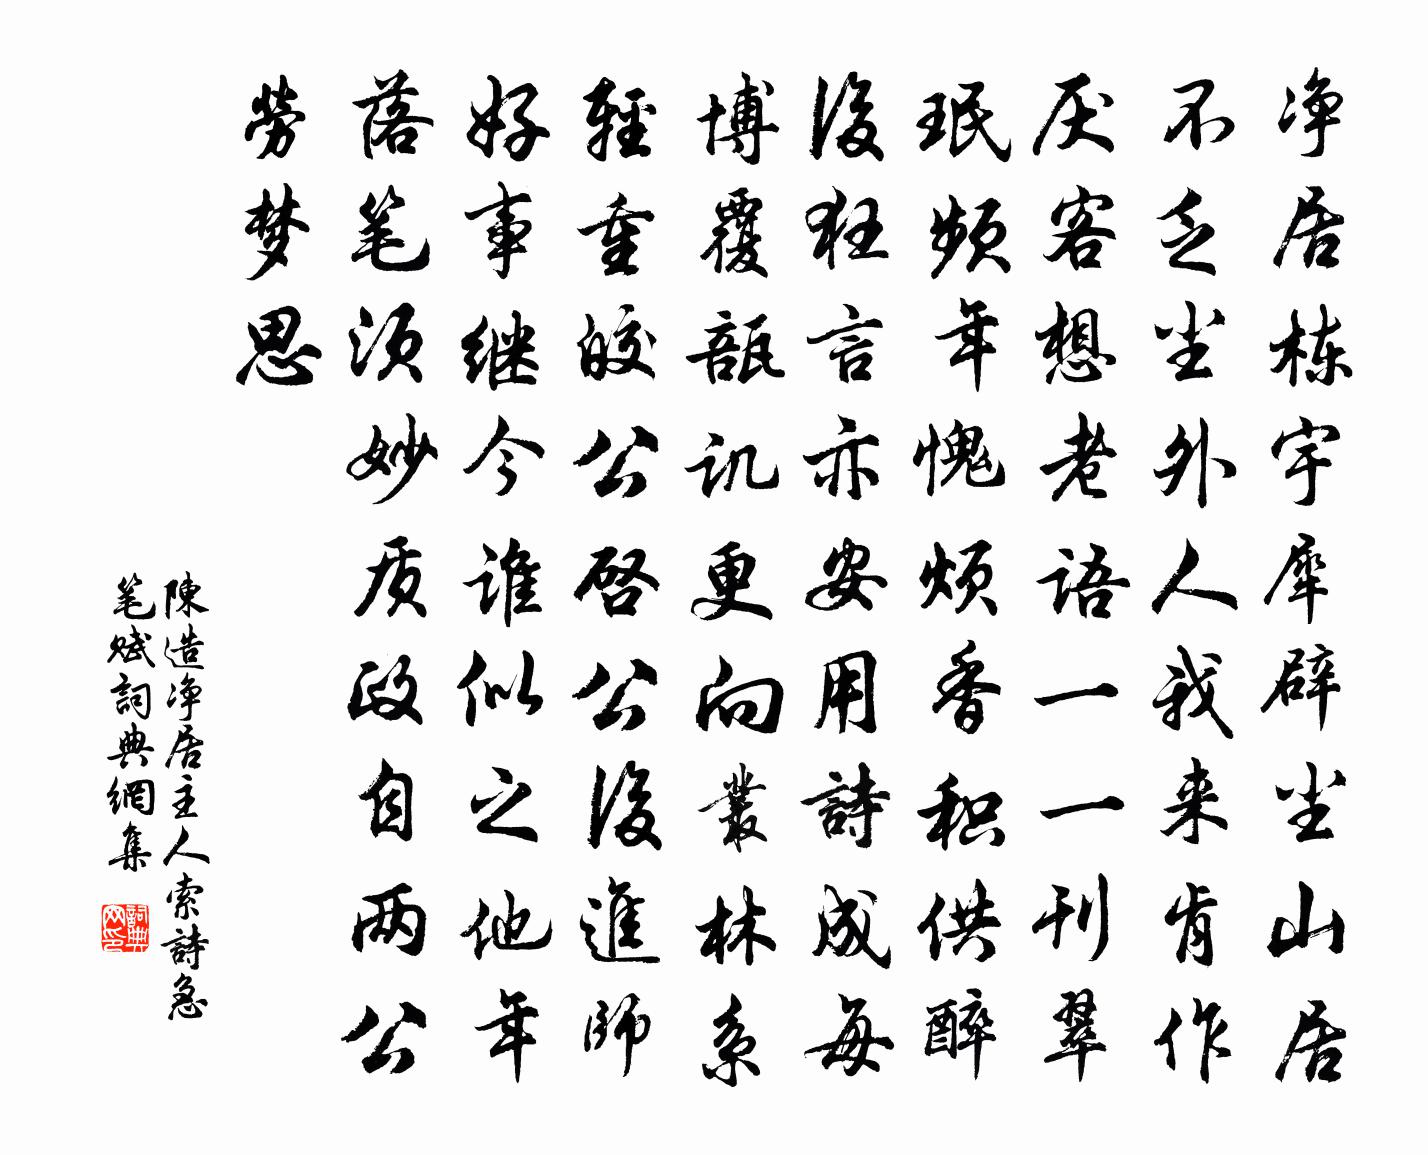 净居栋宇犀辟尘山居
不乏尘外人我来肯作
厌客想老语一一刊翠
珉频年愧烦香积供醉
後狂言亦安用詩成每
博覆瓿讥更向叢林系
輕重皎公啓公後進師
好事继今谁似之他年
落笔须妙质政自两公
劳梦思
陳造净居主人索詩急
笔赋詞典網集
詞典网印